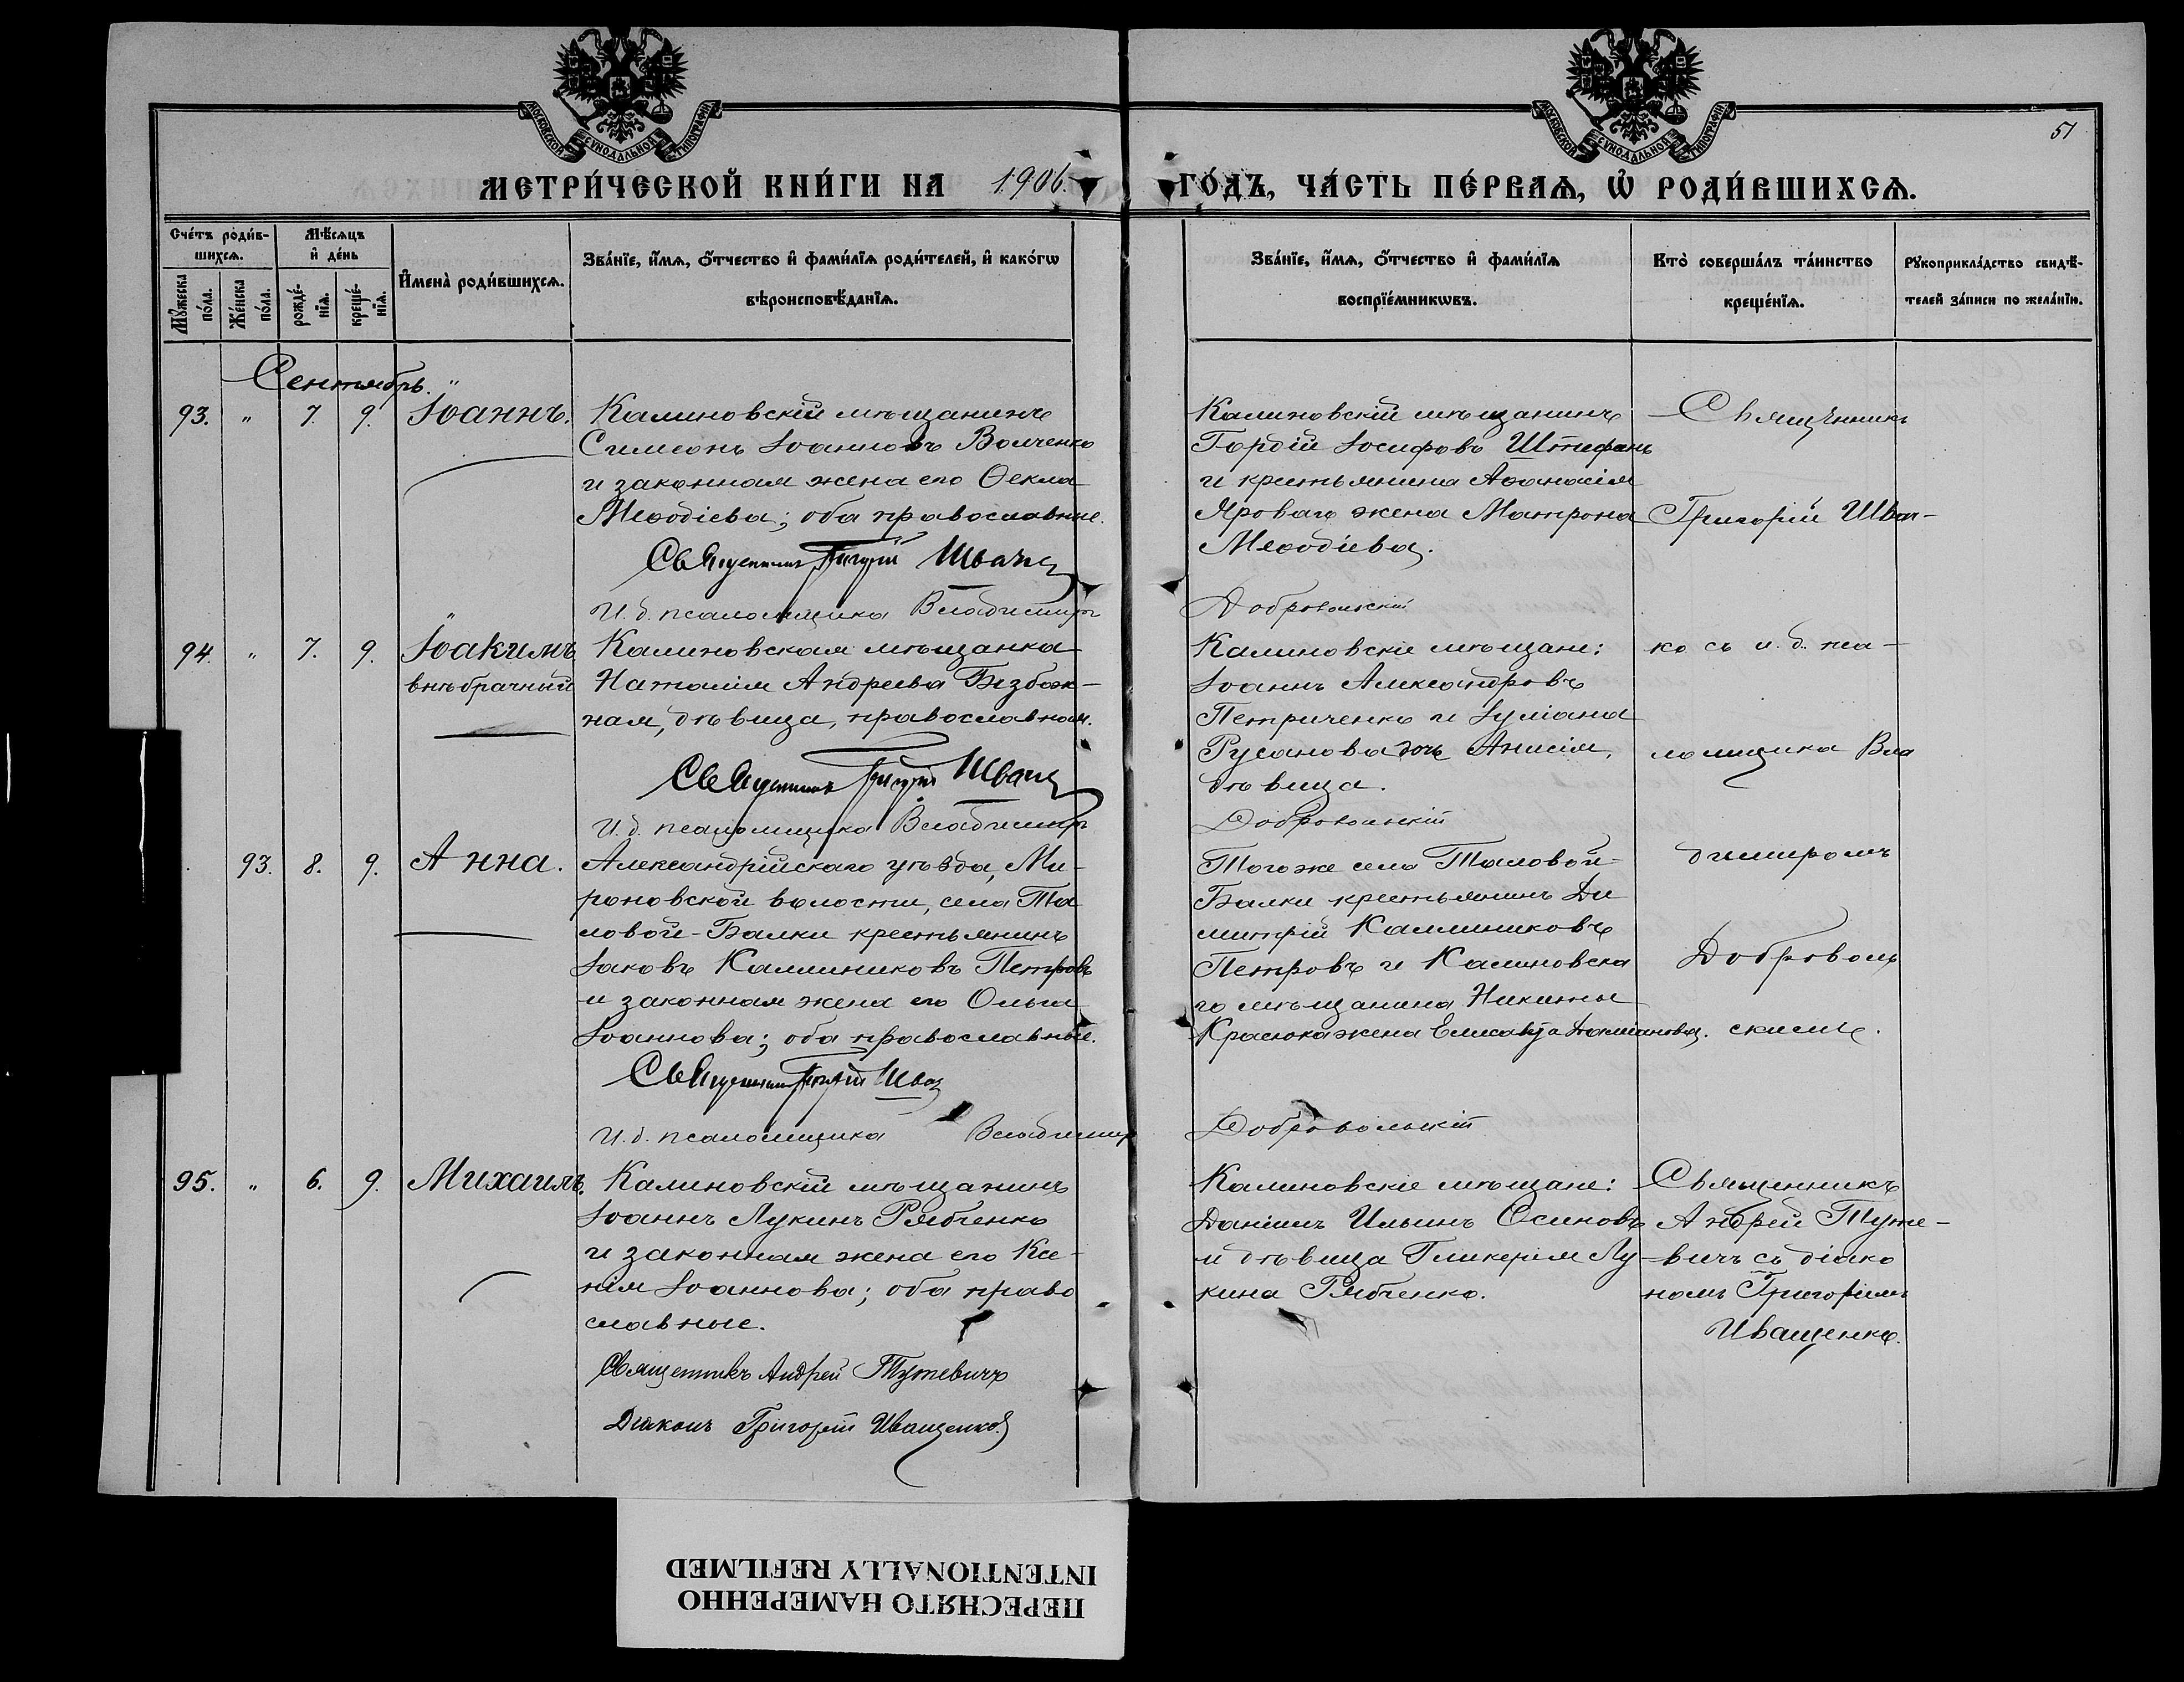 МОСКОВСКОЙ СѴНОДАЛЬНОЙ ТИПОГРАФІИ
МОСКОВСКОЙ СѴНОДАЛЬНОЙ ТИПОГРАФІИ
51
МЕТРИ́ЧЕСКОЙ КНИ́ГИ НА 1906. ГО́ДЪ, ЧА́СТЬ ПЕ́РВАѦ, Ѽ РОДИ́ВШИХСѦ.
Сче́тъ роди́в-
шихсѧ.
Мꙋжеска по́ла.
Же́нска по́ла.
Мѣ́сѧцъ
и҆ де́нь
рожде́-
нїѧ.
креще́-
нїѧ.
И҆мена̀ роди́вшихсѧ.
Зва́нїе, и҆́мѧ, ѻ҆́тчество и҆ фами́лїѧ роди́телей, и҆ како́гѡ
вѣроисповѣ́данїѧ.
Зва́нїе, и҆́мѧ, ѻ҆́тчество и҆ фами́лїѧ
воспрїе́мникѡвъ.
Кто̀ соверша́лъ та́инство
креще́нїѧ.
Рꙋкоприкла́дство свидѣ́-
телей за́писи по жела́нїю.
Сентябрь.
93. " 7. 9. Іоаннъ.
Калиновскій мѣщанинъ
Симеонъ Іоанновъ Волченко
и законная жена его Ѳекла
Меѳодіева; оба православные.
Священникъ Григорій Швачко
И. д. псаломщика Владимиръ Добровольскій
Калиновскій мѣщанинъ
Гордій Іосифовъ Штефанъ
и крестьянина Аѳанасія
Яроваго жена Матрона
Меѳодіева.
Священникъ
Григорій Швач-
94. " 7. 9. Іоакимъ
внѣбрачный
Калиновская мѣщанка
Наталія Андреева Безбож-
ная, дѣвица, православная.
Священникъ Григорій Швачко
И. д. псаломщика Владимиръ Добровольскій
Калиновскіе мѣщане:
Іоаннъ Александровъ
Петриченко и Іуліана
Русанова дочь Анисія,
дѣвица.
ко съ и. д. пса-
ломщика Вла
93. 8. 9. Анна.
Александрійскаго уѣзда, Ми-
роновской волости, села Та
ловой-Балки крестьянинъ
Іаковъ Каллиниковъ Петровъ
и законная жена его Ольга
Іоаннова; оба православные.
Священникъ Григорій Швач
И. д. псаломщика Владимиръ Добровольскій
Того же села Таловой-
Балки крестьянинъ Ди
митрій Каллиниковъ
Петровъ и Калиновска
го мѣщанина Никиты
Красюка жена Елисавета Даміанова.
димиромъ
Доброволь
скимъ.
95. " 6. 9. Михаилъ.
Калиновскій мѣщанинъ
Іоаннъ Лукинъ Рябченко
и законная жена его Ксе-
нія Іоаннова; оба право
славные.
Священникъ Андрей Тужевичъ
Діаконъ Григорій Иващенко
Калиновскіе мѣщане:
Даніилъ Ильинъ Осиповъ
и дѣвица Гликерія Лу-
кина Рябченко.
Священникъ
Андрей Туже-
вичъ съ діако
номъ Григоріемъ
Иващенко.
ПЕРЕСНЯТО НАМЕРЕННО
INTENTIONALLY REFILMED